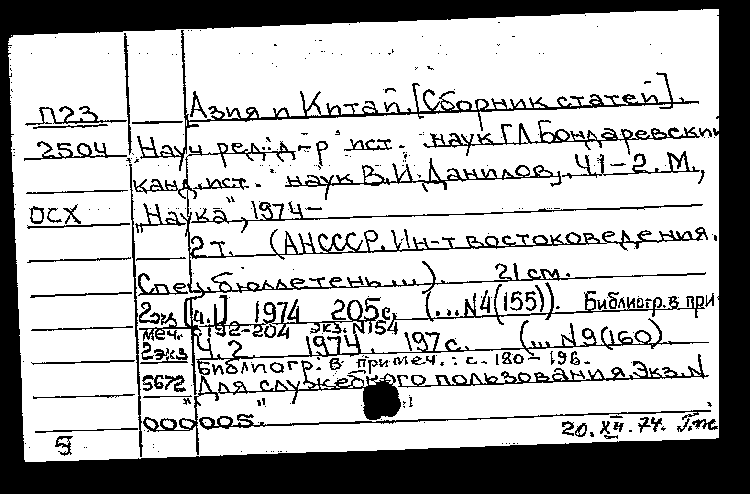 П23 Азия и Китай. [Сборник статей].
2504 Науч. ред.: д-р ист. наук Г.Л. Бондаревский
канд. ист. наук В.И. Данилов, Ч.1-2. М.,
ОСХ "Наука", 1974-
2 т. (АН СССР. Ин-т востоковедения.
Спец. бюллетень...). 21 см.
2 экз [ч.1] 1974 205 с. (...N4(155)). Библиогр. в при
меч.: 192-204 экз. N154
2 экз Ч.2. 1974. 197 с. (...N9(160).
Библиогр: в примеч.: с. 180-196.
5672 "Для служебного пользования. Экз. N
000005."
20.XII.74.